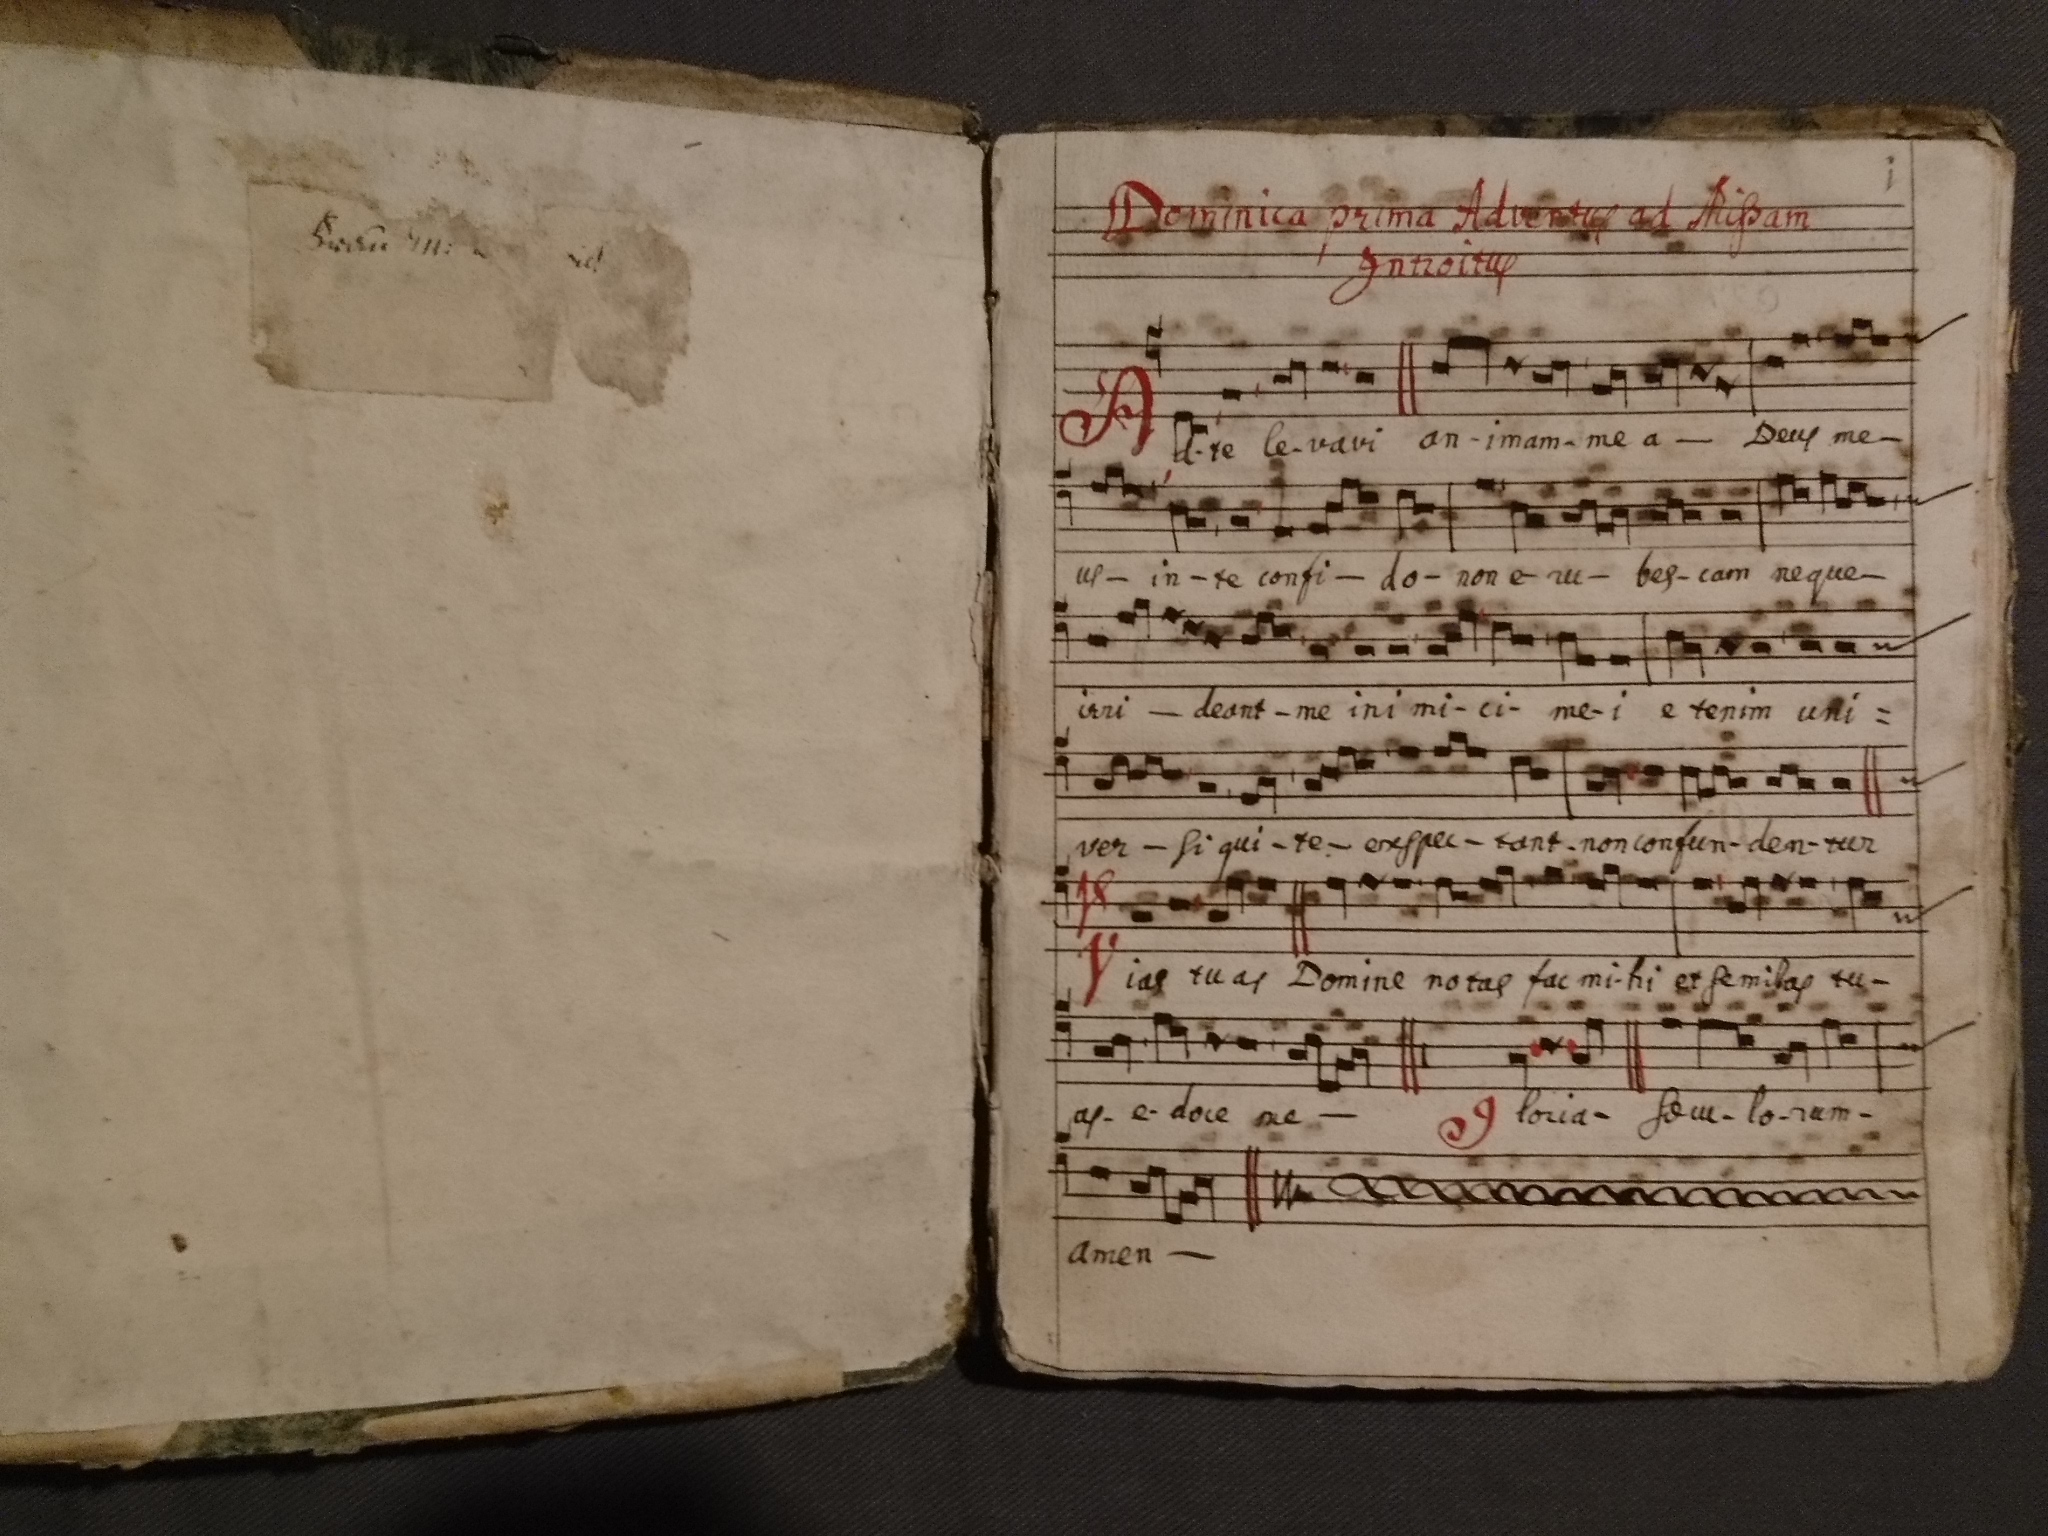 i
Dominica prima Adventus ad Missam
Introitus
Ad-te le-vavi an-imam-me a — Deus me-
us- in-te confi- do- non e-ru- bes-cam neque-
irri — deant-me ini mi-ci- me-i e tenim uni =
ver - si qui-te- exspec-tant-non confun-den-tur
ps
Vias tuas Domine notas fac mi-hi et semitas tu-
as- e-doce me — Gloria- Secu-lo-rum-
amen —